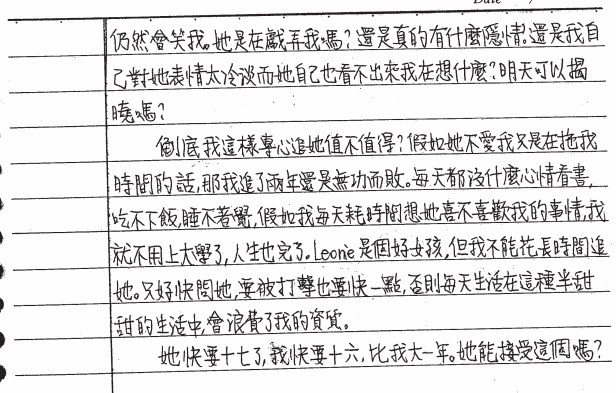 Date
仍然會笑我。她是在戲弄我嗎？還是真的有什麼隱情？還是我自
己對她表情太冷淡而她自己也看不出來我在想什麼？明天可以揭
曉嗎？
倒底我這樣專心追她值不值得？假如她不愛我只是在拖我
時間的話，那我追了兩年還是無功而敗。每天都沒什麼心情看書，
吃不下飯，睡不著覺，假如我每天耗時間想她喜不喜歡我的事情，我
就不用上大學了，人生也完了。Leonie是個好女孩，但我不能花長時間追
她。只好快問她，要被打擊也要快一點，否則每天生活在這種半甜
甜的生活中，會浪費了我的資質。
她快要十七了，我快要十六，比我大一年。她能接受這個嗎？